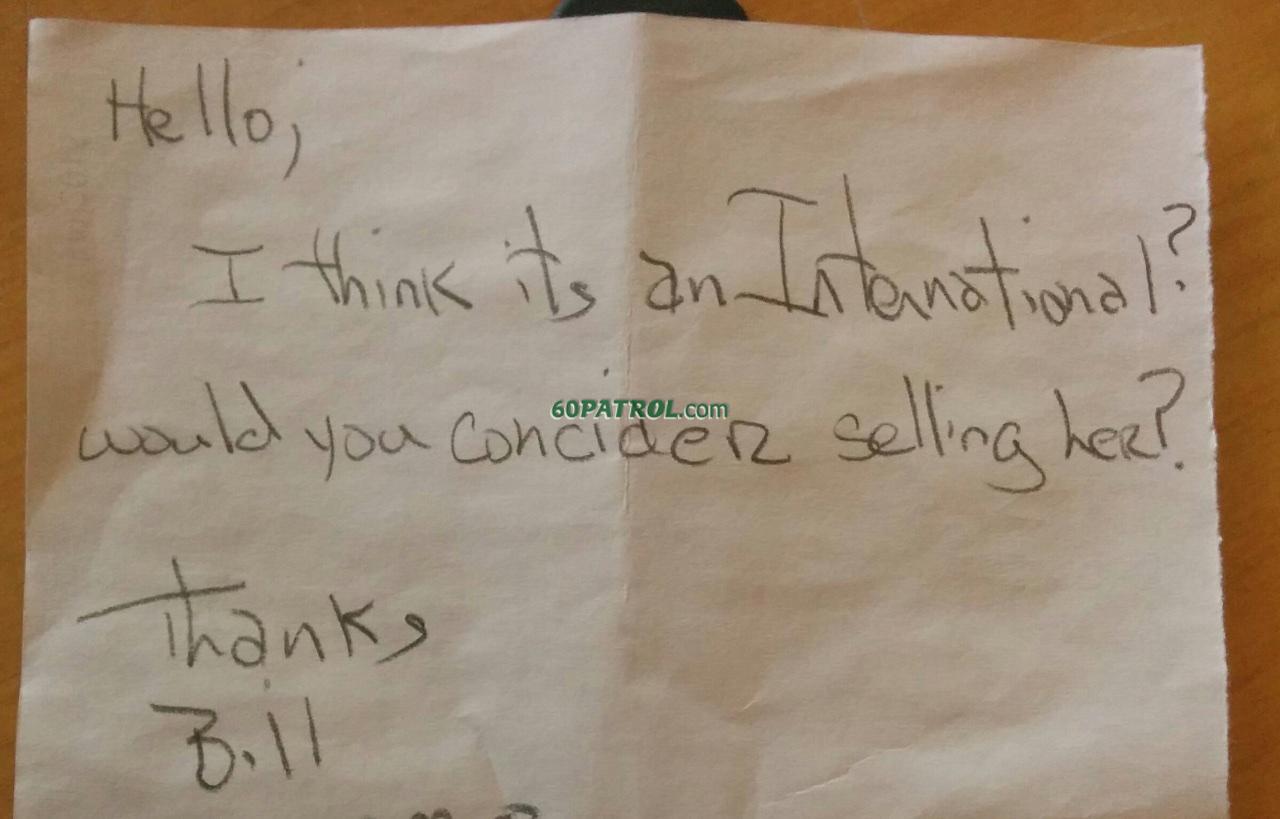 Hello,
I think its an International?
would you concider selling her?
60PATROL.com
Thanks
Bill